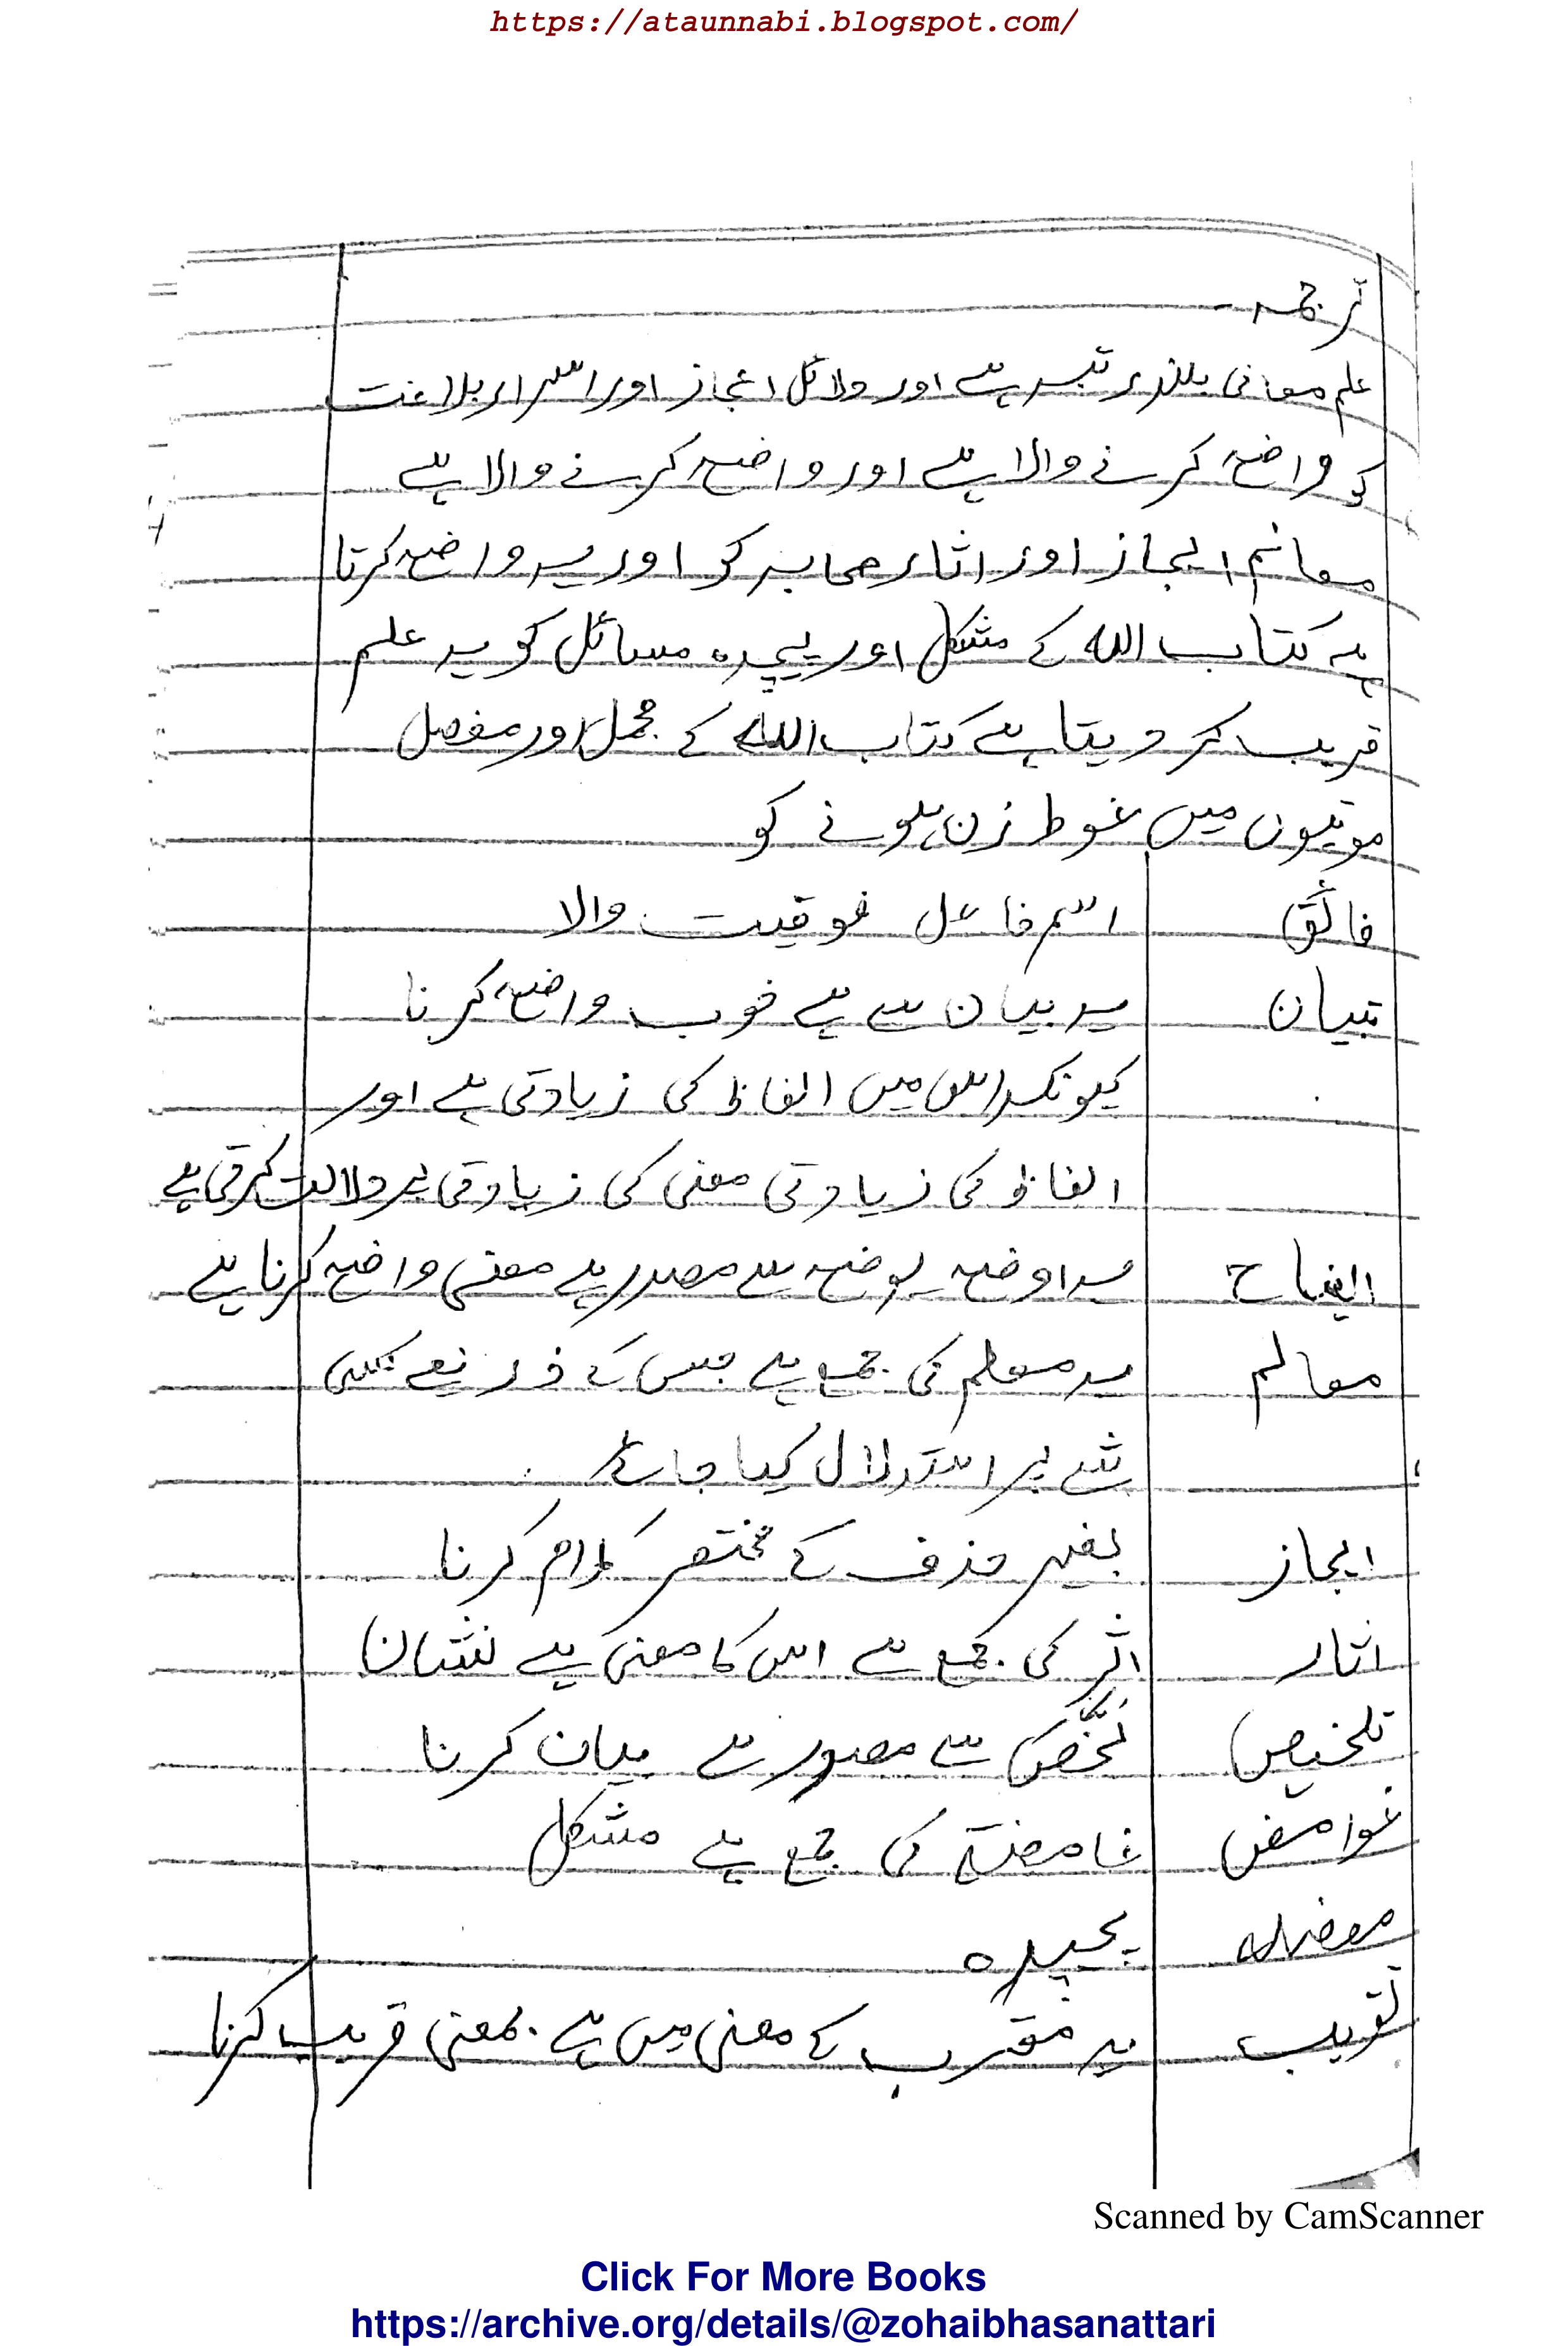 https://ataunnabi.blogspot.com/
ترجمہ -
علم معانی بلند رتبہ ہے اور دلائل اعجاز اور اسرار بلاغت
کو واضح کرنے والا ہے اور واضح کرنے والا ہے
معانم ایجاز اور اثار صحابہ کو اور یہ واضح کرتا
ہے کتاب اللہ کے مشکل اور پیچدہ مسائل کو یہ علم
قریب کر دیتا ہے کتاب اللہ کے مجمل اور مفصل
موتیوں میں غوط زن ہونے کو
فائق اسم فاعل فوقیت والا
تبیان یہ بیان سے ہے خوب واضح کرنا
کیونکہ اس میں الفاظ کی زیادتی ہے اور
الفاظ کی زیادتی معنی کی زیادتی پر دلالت کرتی ہے
ایضاح یہ اوضح یوضح سے مصدر ہے معنی واضح کرنا ہے
معالم یہ معلم کی جمع ہے جس کے ذریعے کسی
شے پر استدلال کیا جائے
ایجاز بغیر حذف کے مختصر کلام کرنا
اثار اثر کی جمع ہے اس کا معنی ہے نشان
تلخیص لخّص سے مصدر ہے بیان کرنا
غوامض غامضۃ کی جمع ہے مشکل
معضلہ پیچیدہ
تقریب یہ مقرب کے معنی میں ہے بمعنی قریب کرنا
Scanned by CamScanner
Click For More Books
https://archive.org/details/@zohaibhasanattari